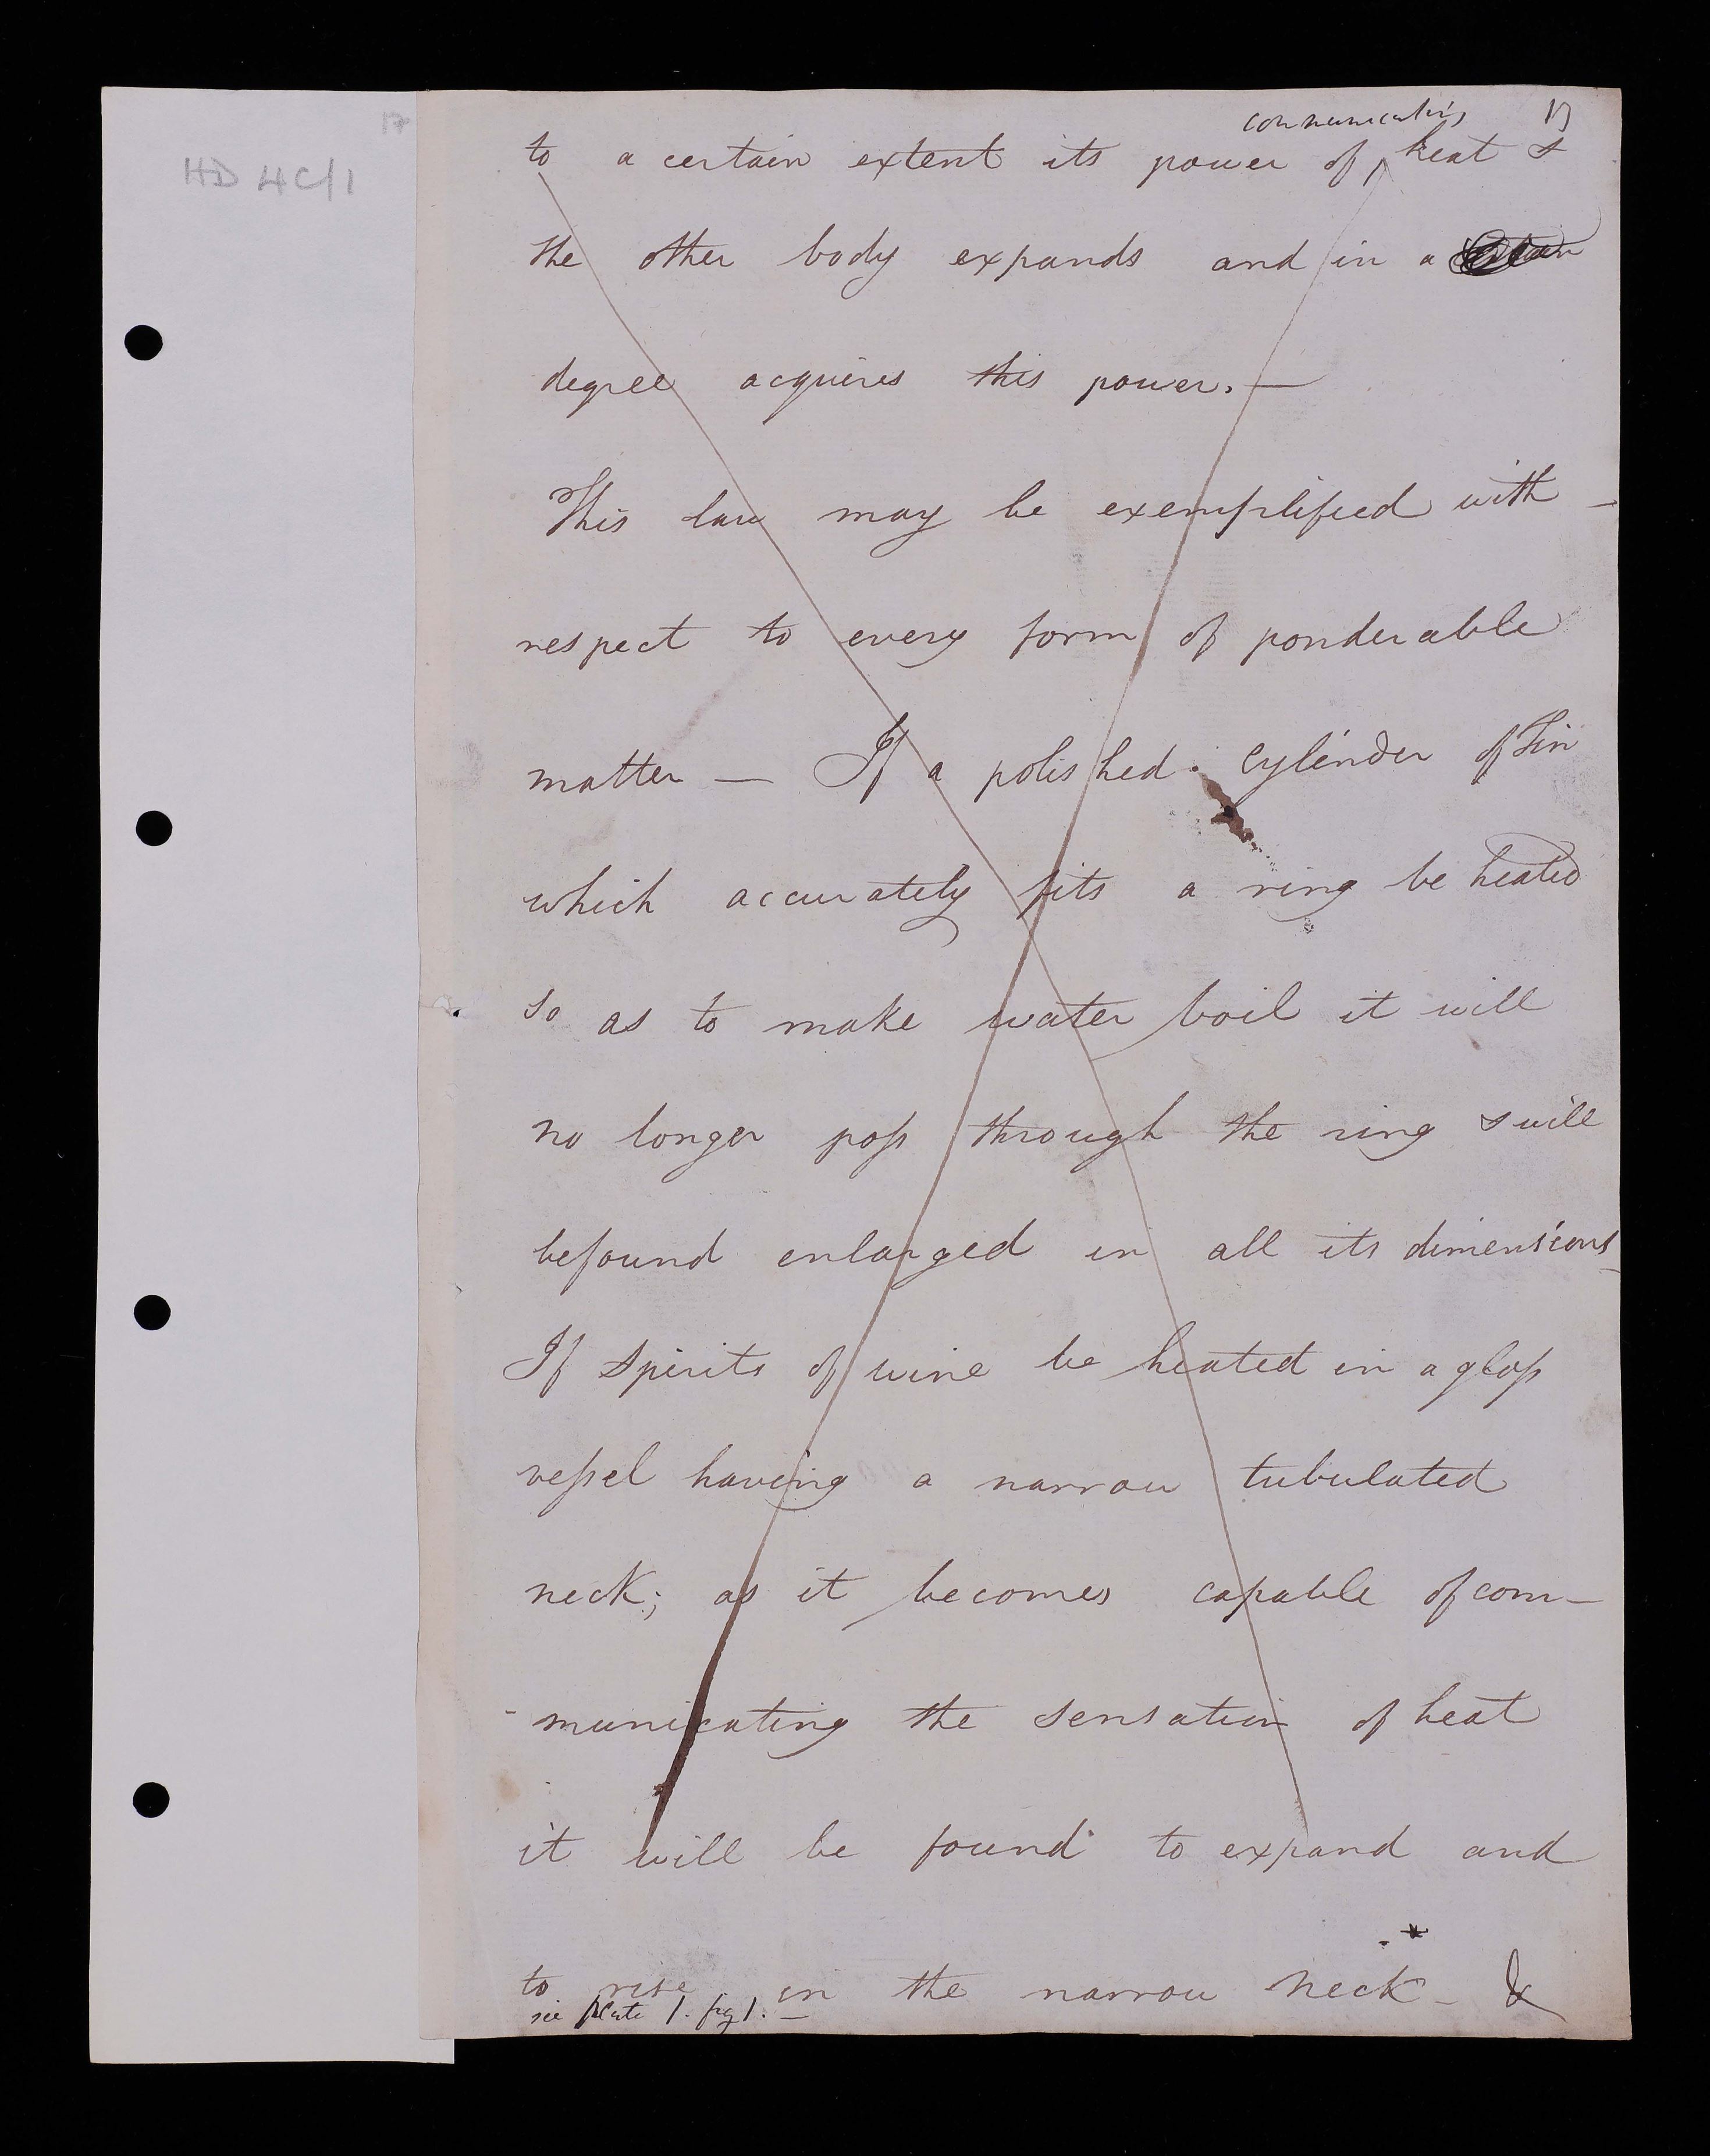 17
HD 4C/1
17
communicating
to a certain extent its power of heat &
the other body expands and in a certain
degree acquires this power. —
This law may be exemplified with —
respect to every form of ponderable
matter — If a polished cylinder of Tin
which accurately fits a ring be heated
so as to make water boil it will
no longer pass through the ring & will
be found enlarged in all its dimensions_
If spirits of wine be heated in a glass
vessel having a narrow tubulated
neck; as it becomes capable of com-
-municating the sensation of heat
it will be found to expand and
to rise in the narrow neck * — &
see plate 1. fig 1. —